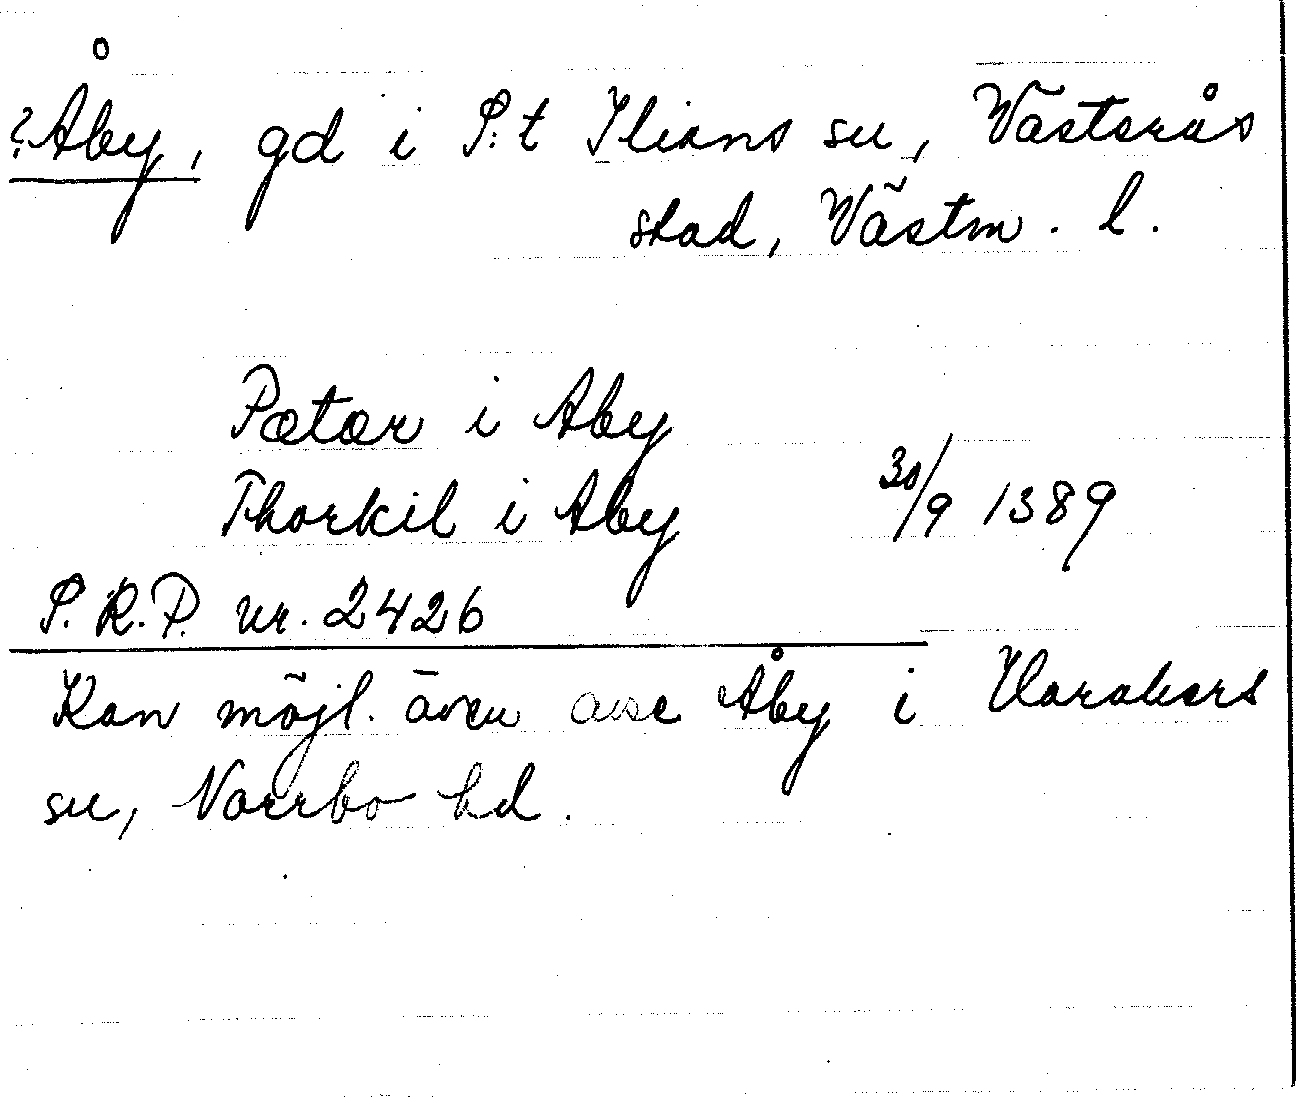 ?Åby, gd i S:t Ilians sn, Västerås
stad, Västm. l.
Pætær i Aby
Thorkil i Aby 30/9 1389
S.R.P. nr. 2426
Kan möjl. även avse Åby i Harakers
sn, Norrbo hd.